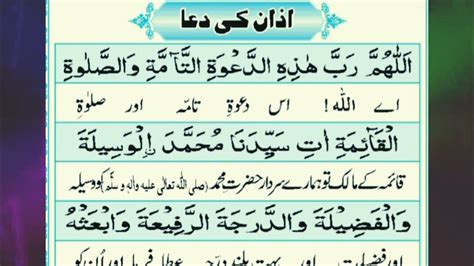 اذان کی دعا
اَللّٰهُمَّ رَبَّ هٰذِهِ الدَّعْوَةِ التَّآمَّةِ وَالصَّلٰوةِ
اے اللہ! اس دعوۃِ تامّہ اور صلوٰۃِ
الْقَآئِمَةِ اٰتِ سَيِّدَنَا مُحَمَّدَ ࣙالْوَسِيْلَةَ
قائمہ کے مالک تو ہمارے سردار حضرت محمد (صلی اللہ تعالٰی علیہ واٰلہٖ وسلّم) کو وسیلہ
وَالْفَضِيْلَةَ وَالدَّرَجَةَ الرَّفِيْعَةَ وَابْعَثْهُ
اور فضیلت اور بہت بلند درجہ عطا فرما اور اُن کو